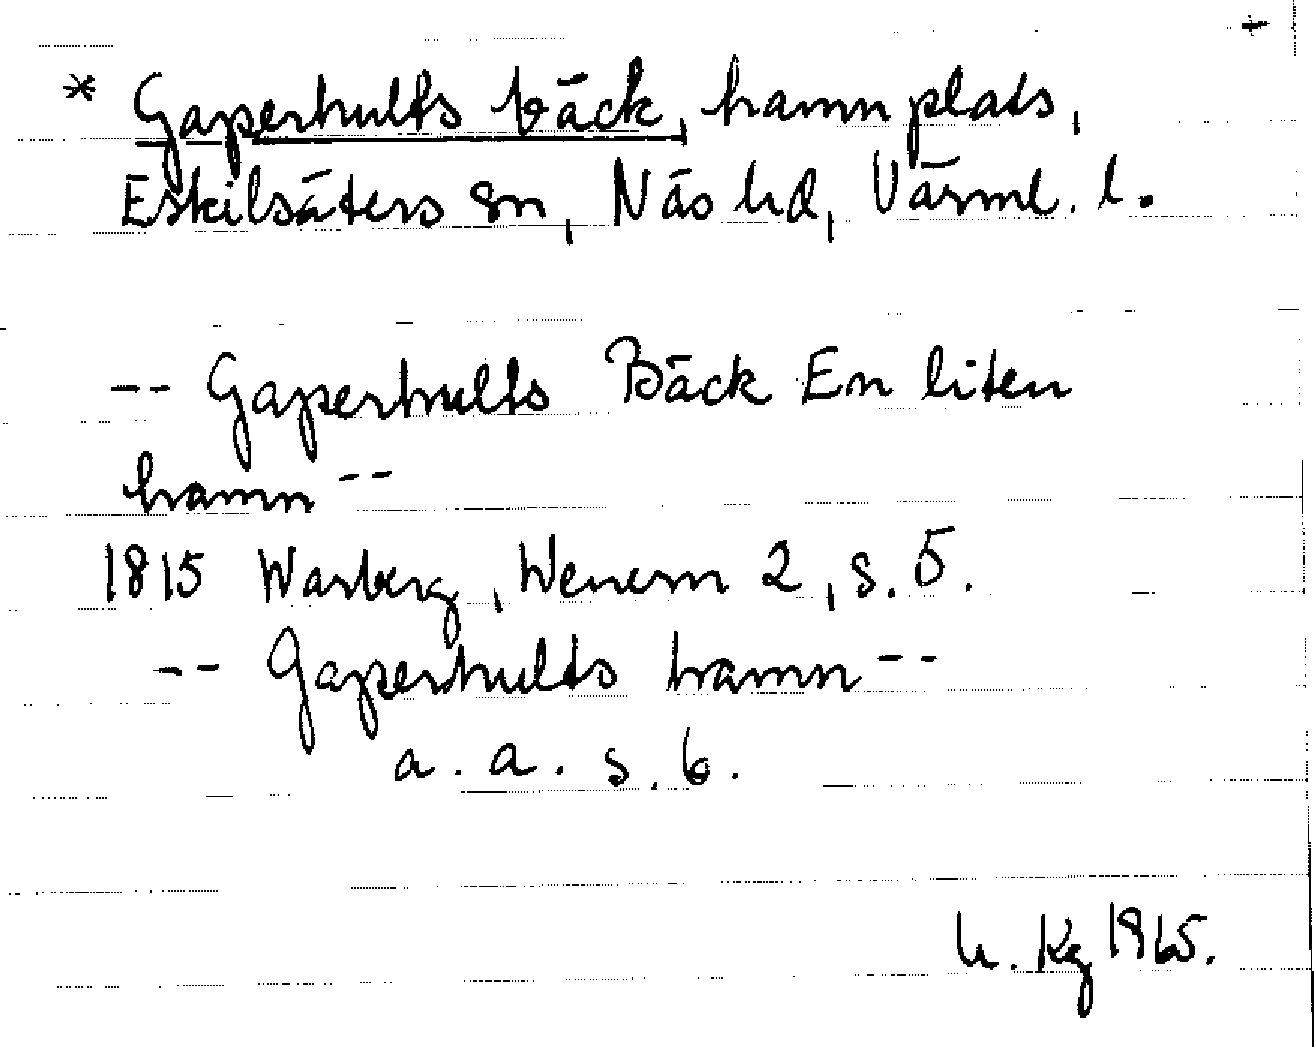 +
* Gaperhults bäck, hamnplats,
Eskilsäters sn, Näs hd, Värml. l.
-- Gaperhults Bäck En liten
hamn --
1815 Warberg, Wenern 2, s. 5.
-- Gaperhults hamn --
a. a. s. 6.
h. Kg 1965.